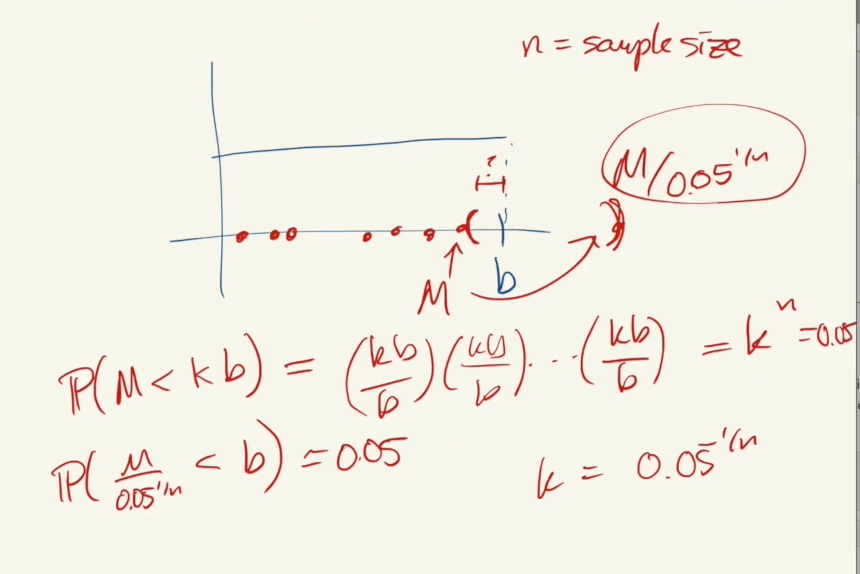 n = sample size
M/0.05^1/n
?
M
b
P(M < kb) = (kb/b)(kb/b)...(kb/b) = k^n = 0.05
P(M/0.05^1/n < b) = 0.05
k = 0.05^1/n